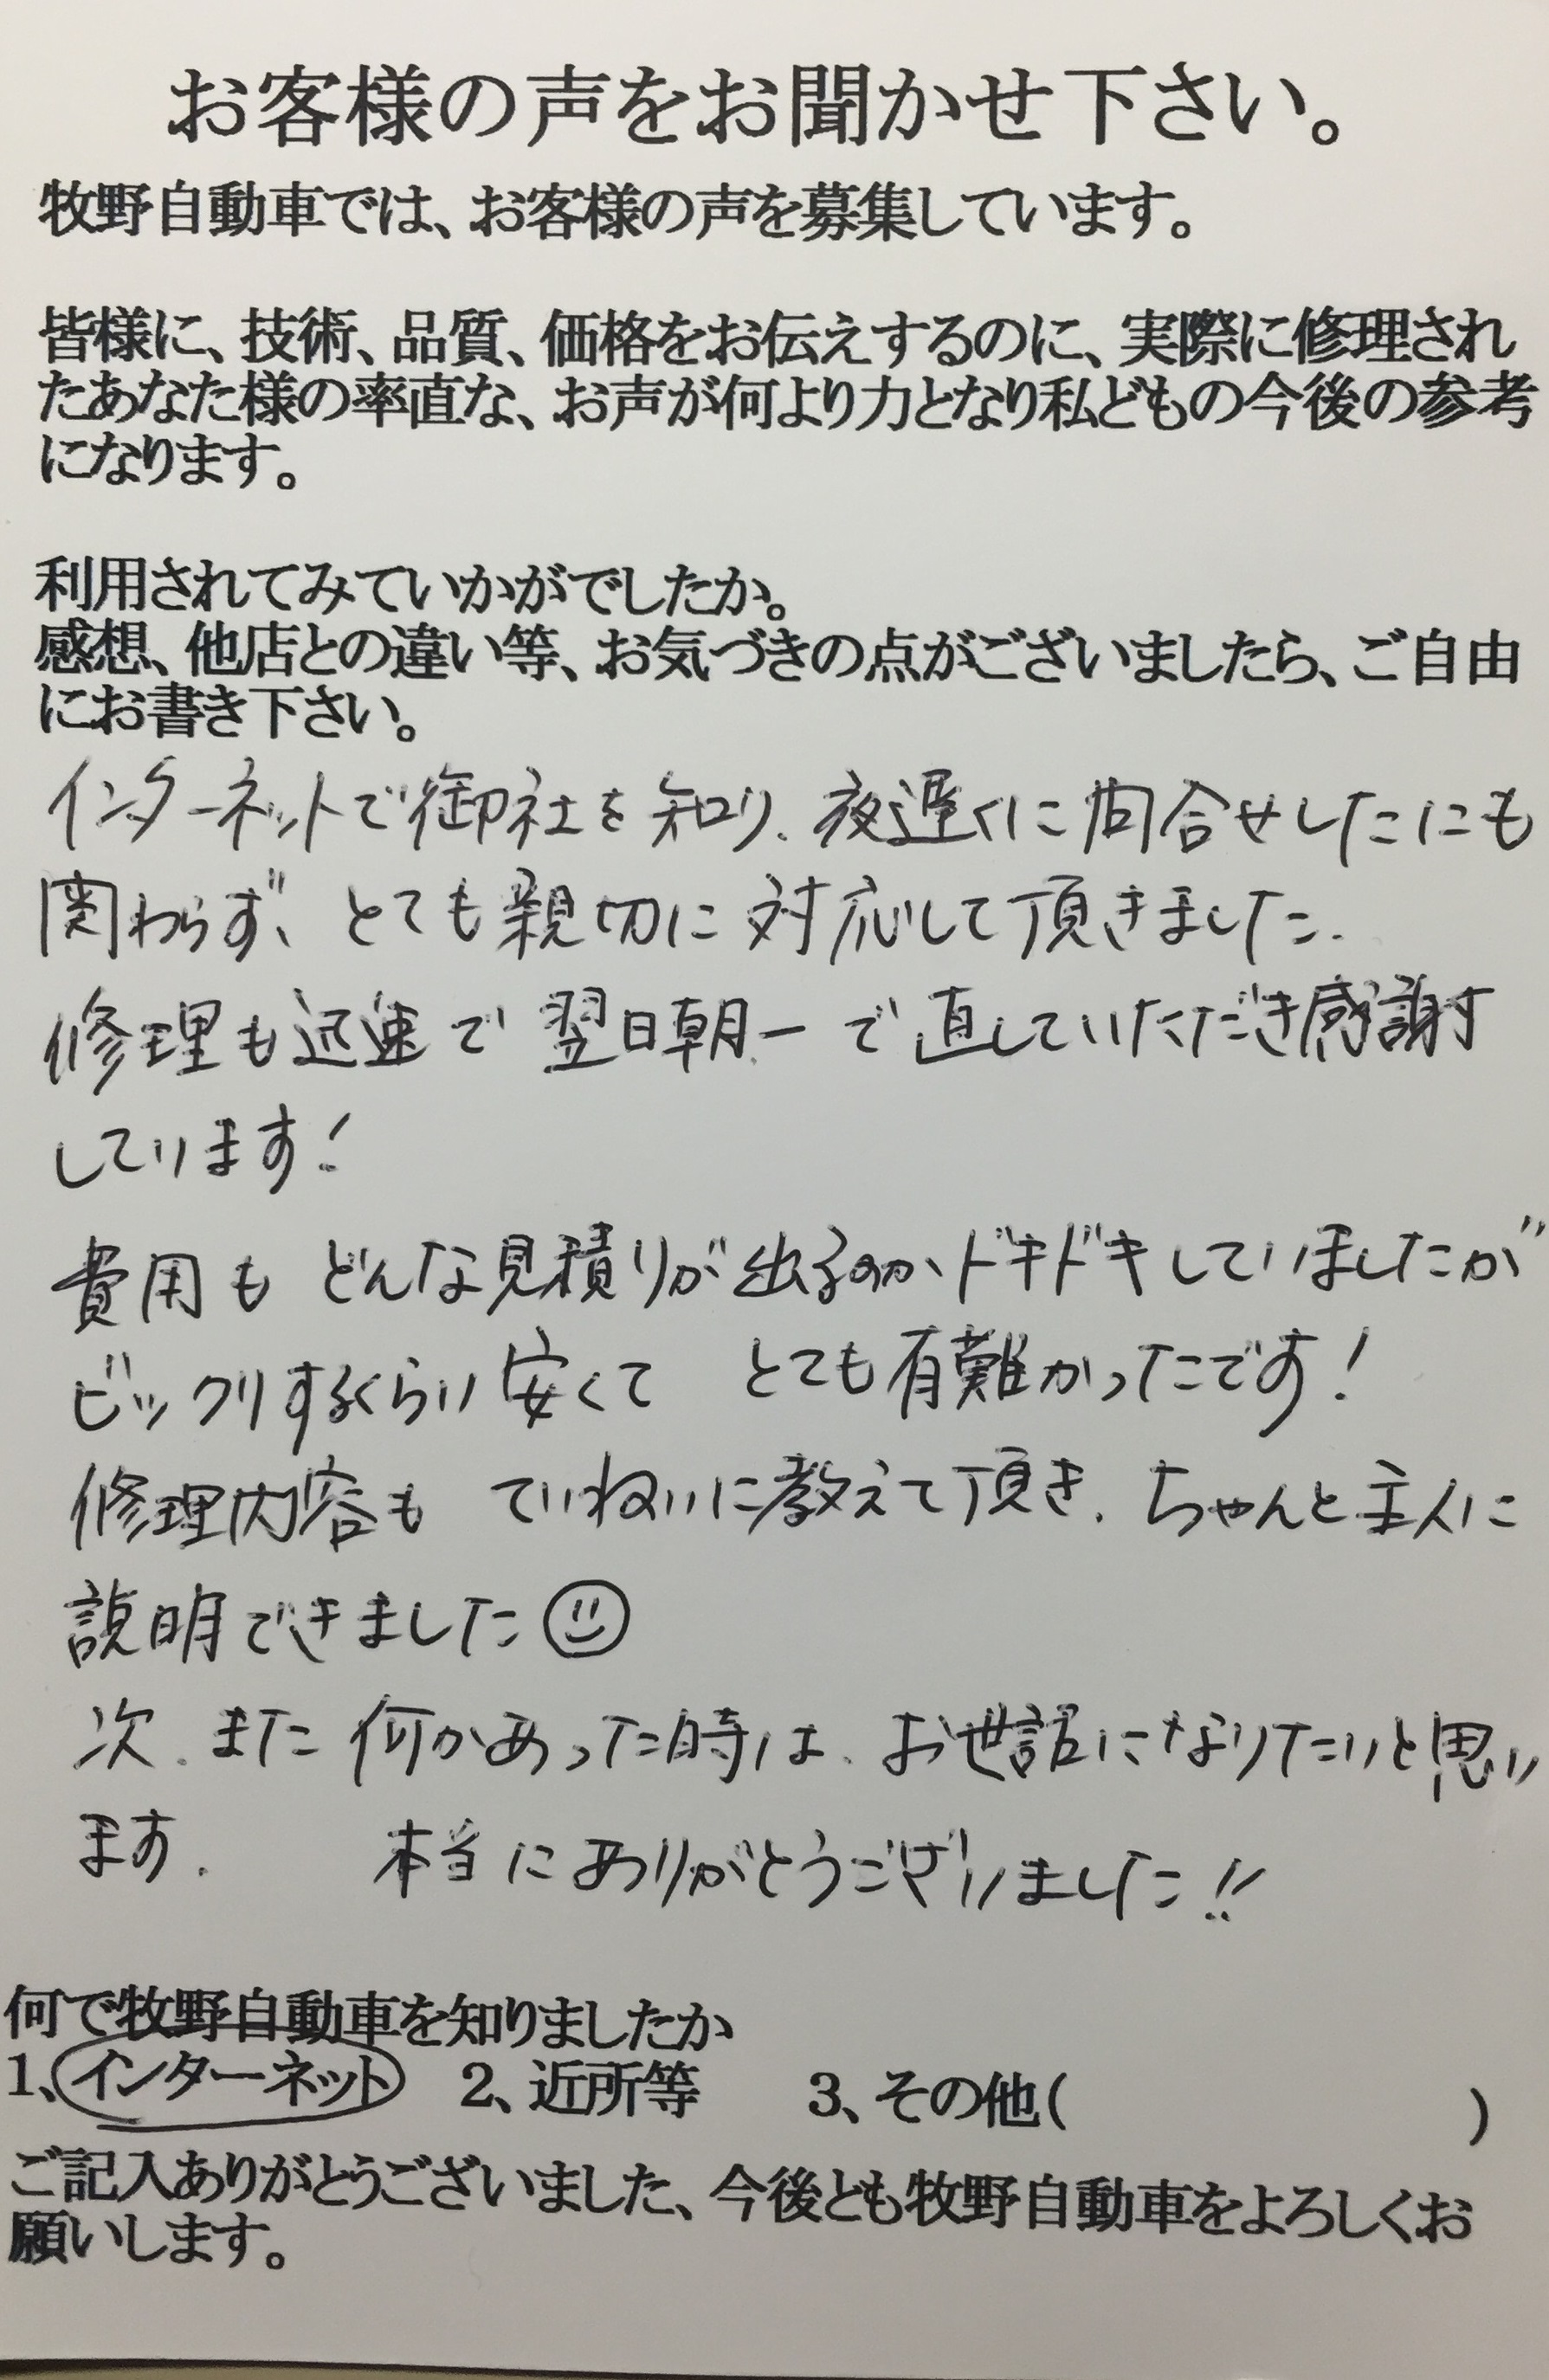 お客様の声をお聞かせ下さい。
牧野自動車では、お客様の声を募集しています。
皆様に、技術、品質、価格をお伝えするのに、実際に修理され
たあなた様の率直な、お声が何より力となり私どもの今後の参考
になります。
利用されてみていかがでしたか。
感想、他店との違い等、お気づきの点がございましたら、ご自由
にお書き下さい。
インターネットで御社を知り、夜遅くに問合せしたにも
関わらず、とても親切に対応して頂きました.
修理も迅速で翌日朝一で直していただき感謝
しています!
費用も どんな見積りが出るのか、ドキドキしていましたが
ビックリするくらい安くて とても有難かったです!
修理内容も ていねいに教えて頂き、ちゃんと主人に
説明できました☺
次、また何かあった時は、お世話になりたいと思い
ます. 本当にありがとうございました!!
何で牧野自動車を知りましたか
1、インターネット 2、近所等 3、その他( )
ご記入ありがとうございました、今後とも牧野自動車をよろしくお
願いします。